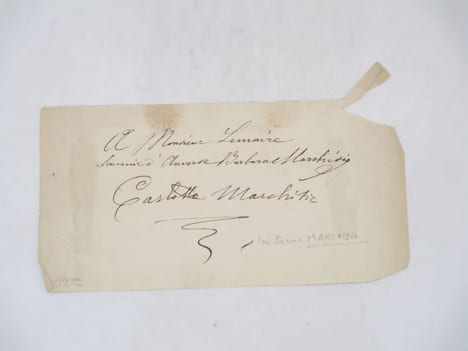 A Monsieur Lemaire
Souvenir d'Anverse Barbara Marchisio
Carlotta Marchisio
les Soeurs MARCHISIO